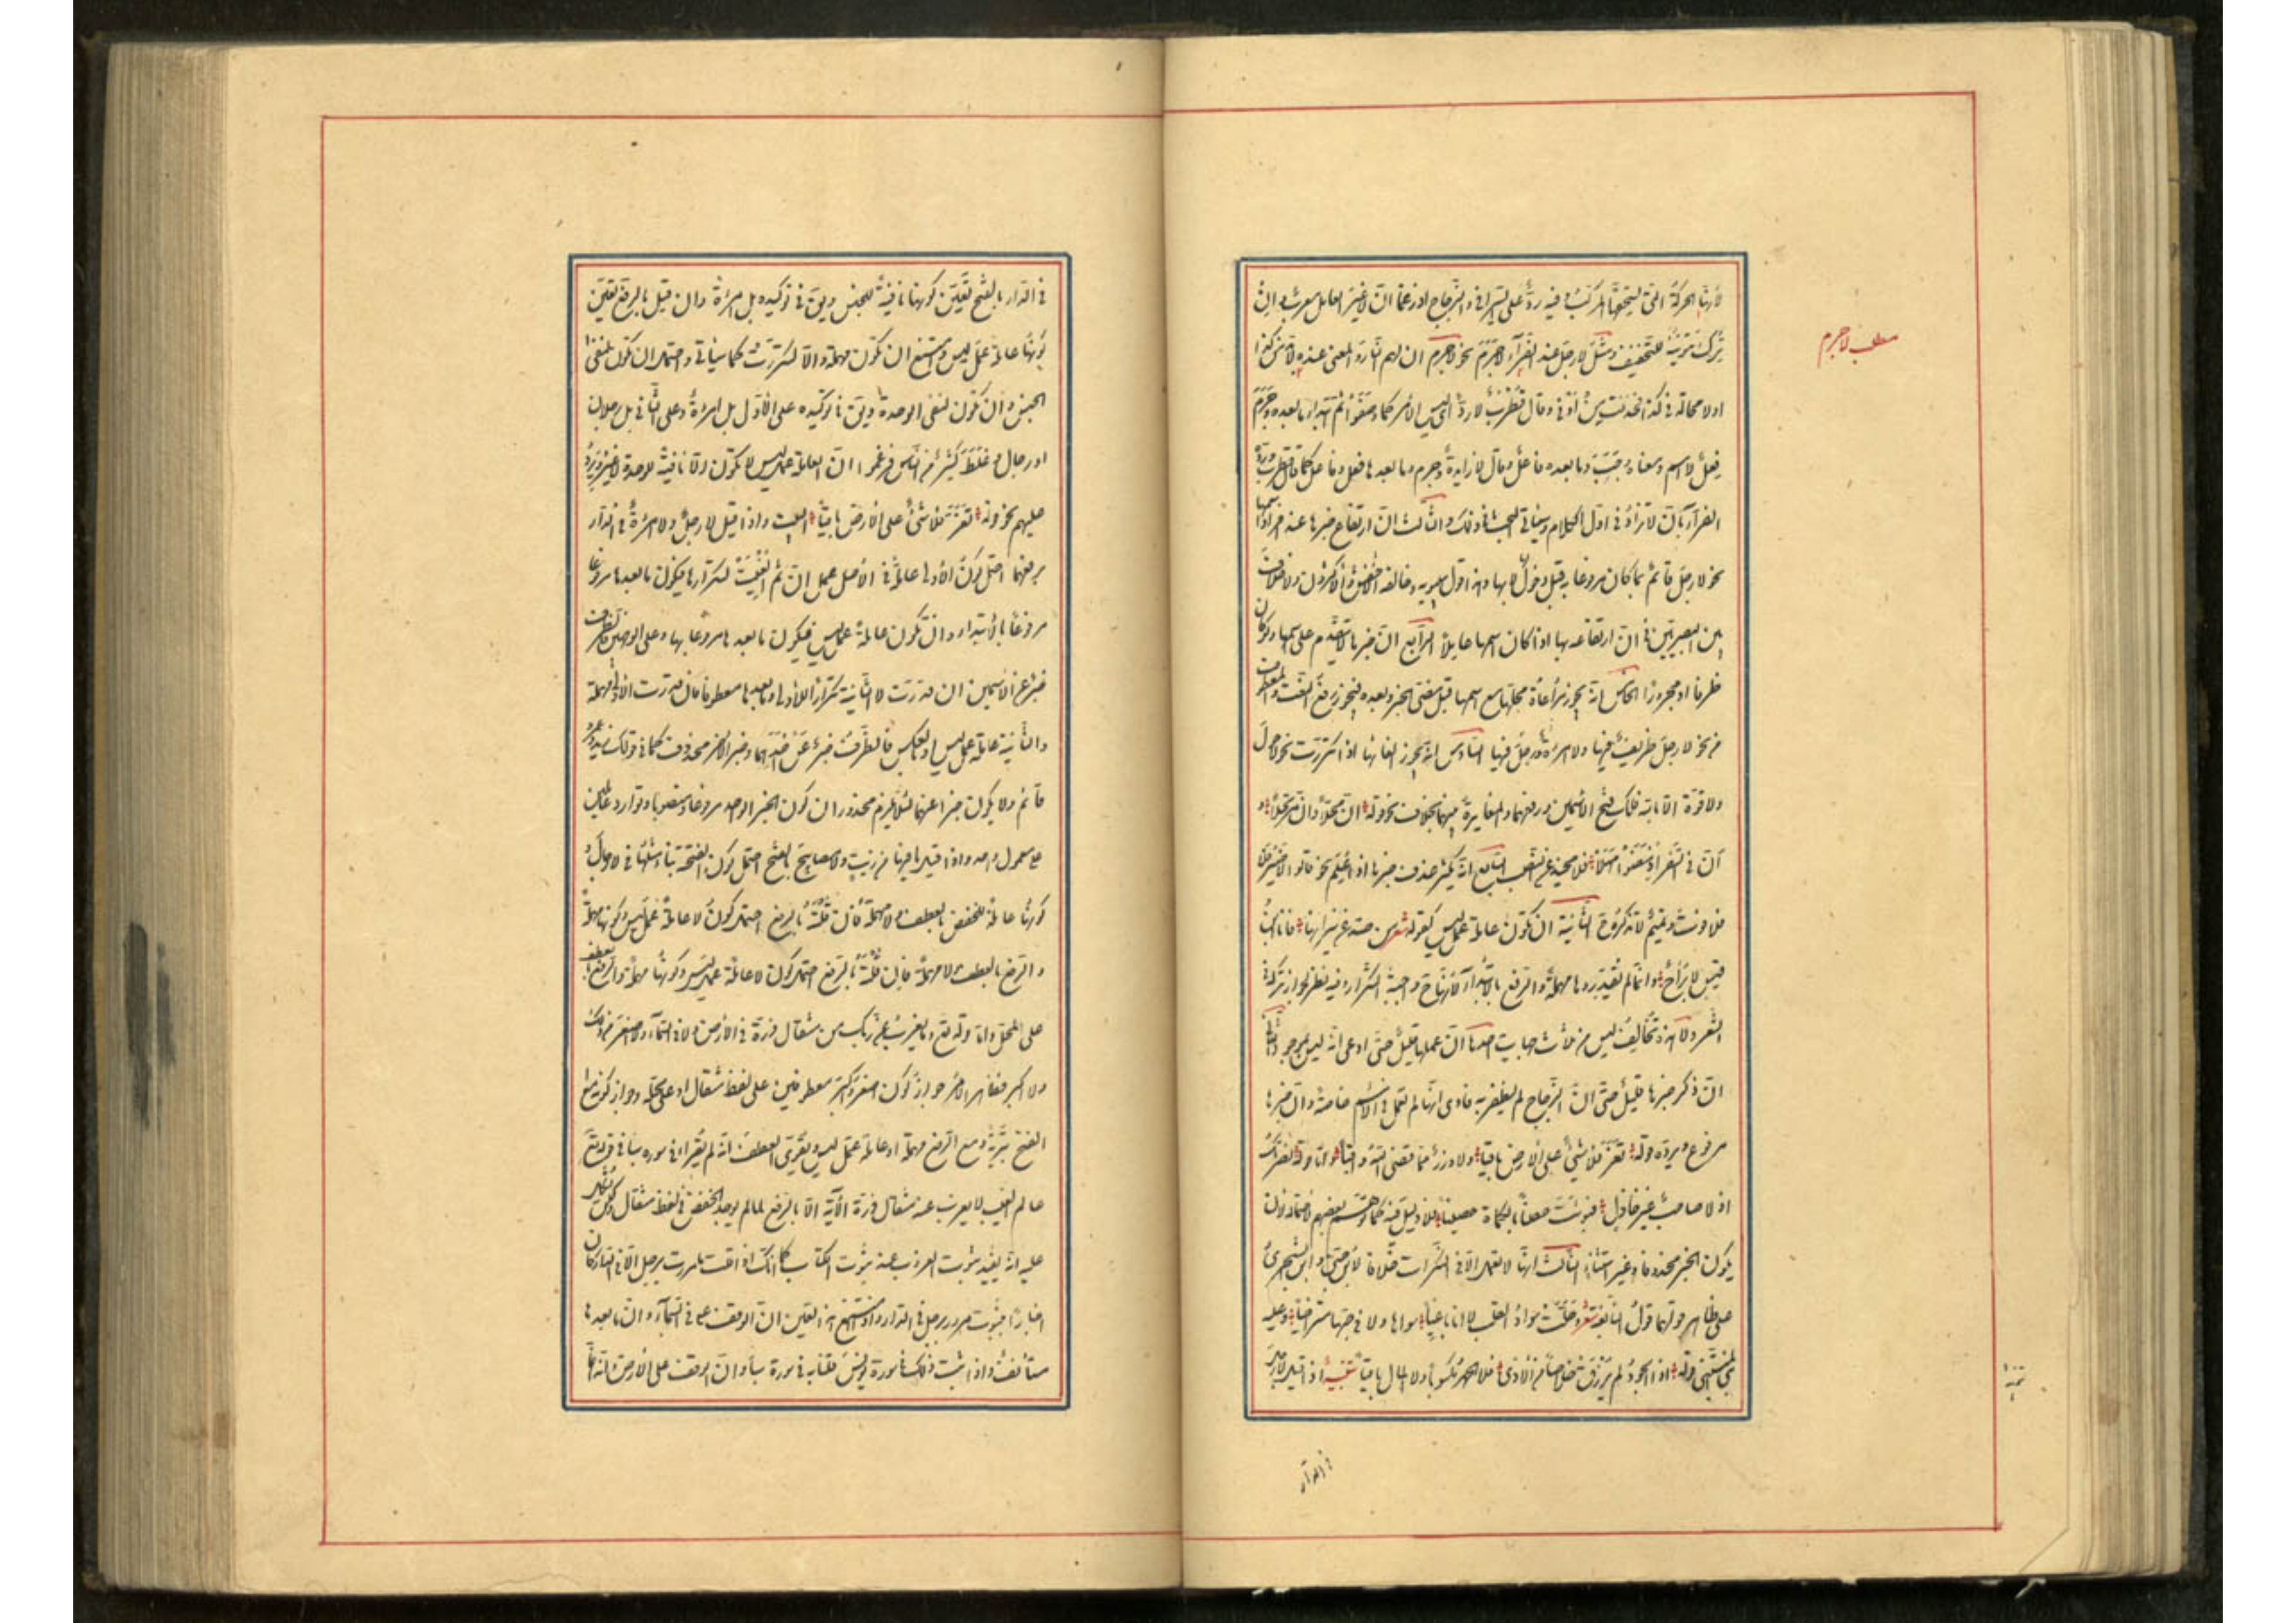 لأنها الحركة التي يستحقها المركب وفيه ردّ على السيرافي والزجاج اذ زعما ان لا غير العامل معرب وان
ترك تنوينه للتخفيف ومثل لا رجل عند الفرّاء لا جرم نحو لا جرم ان لهم النار والمعنى عنده لا بدّ من كذا
او لا محالة في كذا فحذفت من او في وقال قطرب لا ردّ اي ليس الأمر كما وصفوا ثم ابتداء ما بعده وجرم
فعل لا اسم ومعناه وجب وما بعده فاعل وقال لا زايدة وجرم وما بعدها فعل وفاعل كما قال قطرب وردّه
الفراء بان لا تزاد في اول الكلام وسيأتي البحث في ذلك والثالث ان ارتفاع خبرها عند افراد اسمها
نحو لا رجل قائم بما كان مرفوعا به قبل دخول لا بها وهذا قول سيبويه وخالفه الأخفش والأكثرون ولا خلاف
بين البصريين في ان ارتفاعه بها اذا كان اسمها عاملا الرابع ان خبرها لا يتقدم على اسمها ولو كان
ظرفا او مجرورا الخامس انه يجوز مراعاة محلها مع اسمها قبل مضيّ الخبر وبعده فيجوز رفع النعت والمعطوف
من نحو لا رجل ظريف فيها ولا امرأة ورجل فيها السادس انه يجوز الغائها اذا تكررت نحو لا حول
ولا قوة الا بالله فلك فتح الاسمين ورفعهما والمغايرة بينهما بخلاف نحو قوله ان محلا وان مرتحلا و
ان في السفر اذ مضوا مهلا فلا محيد عن النصب السابع انه يكثر حذف خبرها اذا علم نحو قالوا لا ضير فلا
فلا فوت وتميم لا تذكره ح الثانية ان تكون عاملة عمل ليس كقوله شعر من صدّ عن نيرانها فانا ابن
قيس لا براح وانما لم تقدّروها مهملة والرفع بالابتداء لأنها ح واجبة التكرار وفيه نظر لجواز تركه في
الشعر ولا هذه تخالف ليس من ثلاث جهات احدها ان عملها قليل حتى ادعى انه ليس بموجود الثانى
ان ذكر خبرها قليل حتى ان الزجاج لم يظفر به فادعى انها لم تعمل في الاسم خاصة وان خبرها
مرفوع ويردّه قوله تعزّ فلا شيء على الأرض باقيا ولا وزر مما قضى الله واقيا واما قوله نصرتك
اذ لا صاحب غير خاذل فبوّئت حصنا بالكماة حصينا فلا دليل فيه كما توهم بعضهم لاحتمال ان
يكون الخبر محذوفا وغير استثناء الثالث انها لا تعمل الا في النكرات خلافا لابن جني وابن الشجري
على ظاهر قولهما قول النابغة شعر وحلّت سواد القلب لا انا باغيا سواها ولا في حبها متراخيا وعليه
بنى المتنبى قوله اذا الجود لم يرزق خلاصا من الأذى فلا الحمد مكسوبا ولا المال باقيا تنبيه اذا قيل لا رجل
في الدار
مطلب لا جرم
في الدار بالفتح تعيّن كونها نافية للجنس ويق في توكيده بل امرأة وان قيل بالرفع تعيّن
كونها عاملة عمل ليس وامتنع ان تكون مهملة والا لتكررت كما سيأتي واحتمل ان تكون لنفى
الجنس وان تكون لنفى الوحدة ويق في توكيده على الأول بل امرأة وعلى الثاني بل رجلان
او رجال وغلط كثير من الناس فزعموا ان العاملة عمل ليس لا تكون الا نافية للوحدة لا غير ويردّ
عليهم نحو قوله تعزّ فلا شيء على الأرض باقيا البيت واذا قيل لا رجل ولا امرأة في الدار
برفعهما احتمل كون الأولى عاملة في الأصل عمل ان ثم ألغيت لتكرارها فيكون ما بعدها مرفوعا
مرفوعا بالابتداء وان تكون عاملة عمل ليس فيكون ما بعدها مرفوعا بها وعلى الوجهين فالظرف
خبر عن الاسمين ان قدّرت لا الثانية تكرارا للأولى وما بعدها معطوفا فان قدّرت الأولى مهملة
والثانية عاملة عمل ليس او بالعكس فالظرف خبر عن احدهما وخبر الآخر محذوف كما في قولك زيد وعمرو
قائم ولا يكون خبرا عنهما لئلا يلزم محذوران كون الخبر الواحد مرفوعا ومنصوبا وتوارد عاملين
على معمول واحد واذا قيل ما فيها من زيت ولا مصابيح بالفتح احتمل كون الفتحة بناء مثلها في لا رجال و
كونها عاملة للخفض بالعطف ولا مهملة فان قلته بالرفع احتمل كون لا عاملة عمل ليس وكونها مهملة
والرفع بالعطف لا مهملة فان قلته بالرفع احتمل كون لا عاملة عمل ليس وكونها مهملة والرفع بالعطف
على المحل واما قوله تع وما يعزب عن ربك من مثقال ذرة في الأرض ولا في السماء ولا اصغر من ذلك
ولا اكبر فظاهر الأمر جواز كون اصغر واكبر معطوفين على لفظ مثقال او على محله وجواز كون لا مع
الفتح تبرية ومع الرفع مهملة او عاملة عمل ليس ويقوّى العطف انه لم يقراء في سورة سبا في قوله تع
عالم الغيب لا يعزب عنه مثقال ذرة الآية الا بالرفع لما لم يوجد الخفض في لفظ مثقال ولكن يشكل
عليه انه يفيد ثبوت العزوب عند ثبوت الكتاب كما انك اذا قلت ما مررت برجل الا في الدار كان
اخبارا بثبوت مرورك برجل في الدار واذا امتنع هذا تعين ان الوقف على في السماء وان ما بعدها
مستأنف واذا ثبت ذلك في سورة يونس قلنا به في سورة سبا وان الوقف على الأرض وانه انما